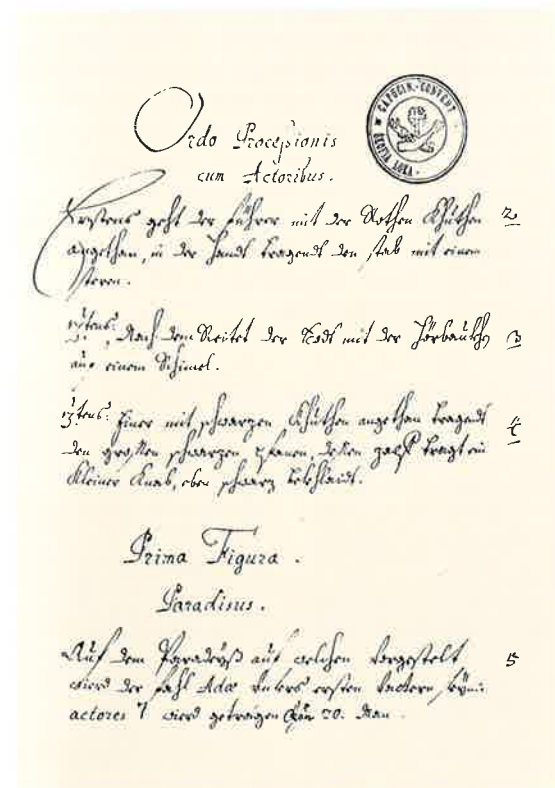 Ordo Processionis
cum Actoribus.
CAPUCIN.-CONVENT
ŠKOFJA LOKA
Erstens geht der führer mit der Rothen Khuthen 2
angethan, in der handt tragendt den stab mit einem
stern.
2tens: Nach dem Reitet der Todt mit der Hörbaukhen 3
auf einem Schimel.
3tens: Einer mit schwarzen Khuthen angethan tragendt 4
den grossen schwarzen fanen, dessen tragt ein
Kleiner Knab, eben schwarz bekhlaidt.
Prima Figura.
Paradisus.
Auf dem Paradeyß auf welchen vorgestelt 5
wierd der fahl Adae unsers ersten vattern,
actores 7 wierd getragen von 20. Man.